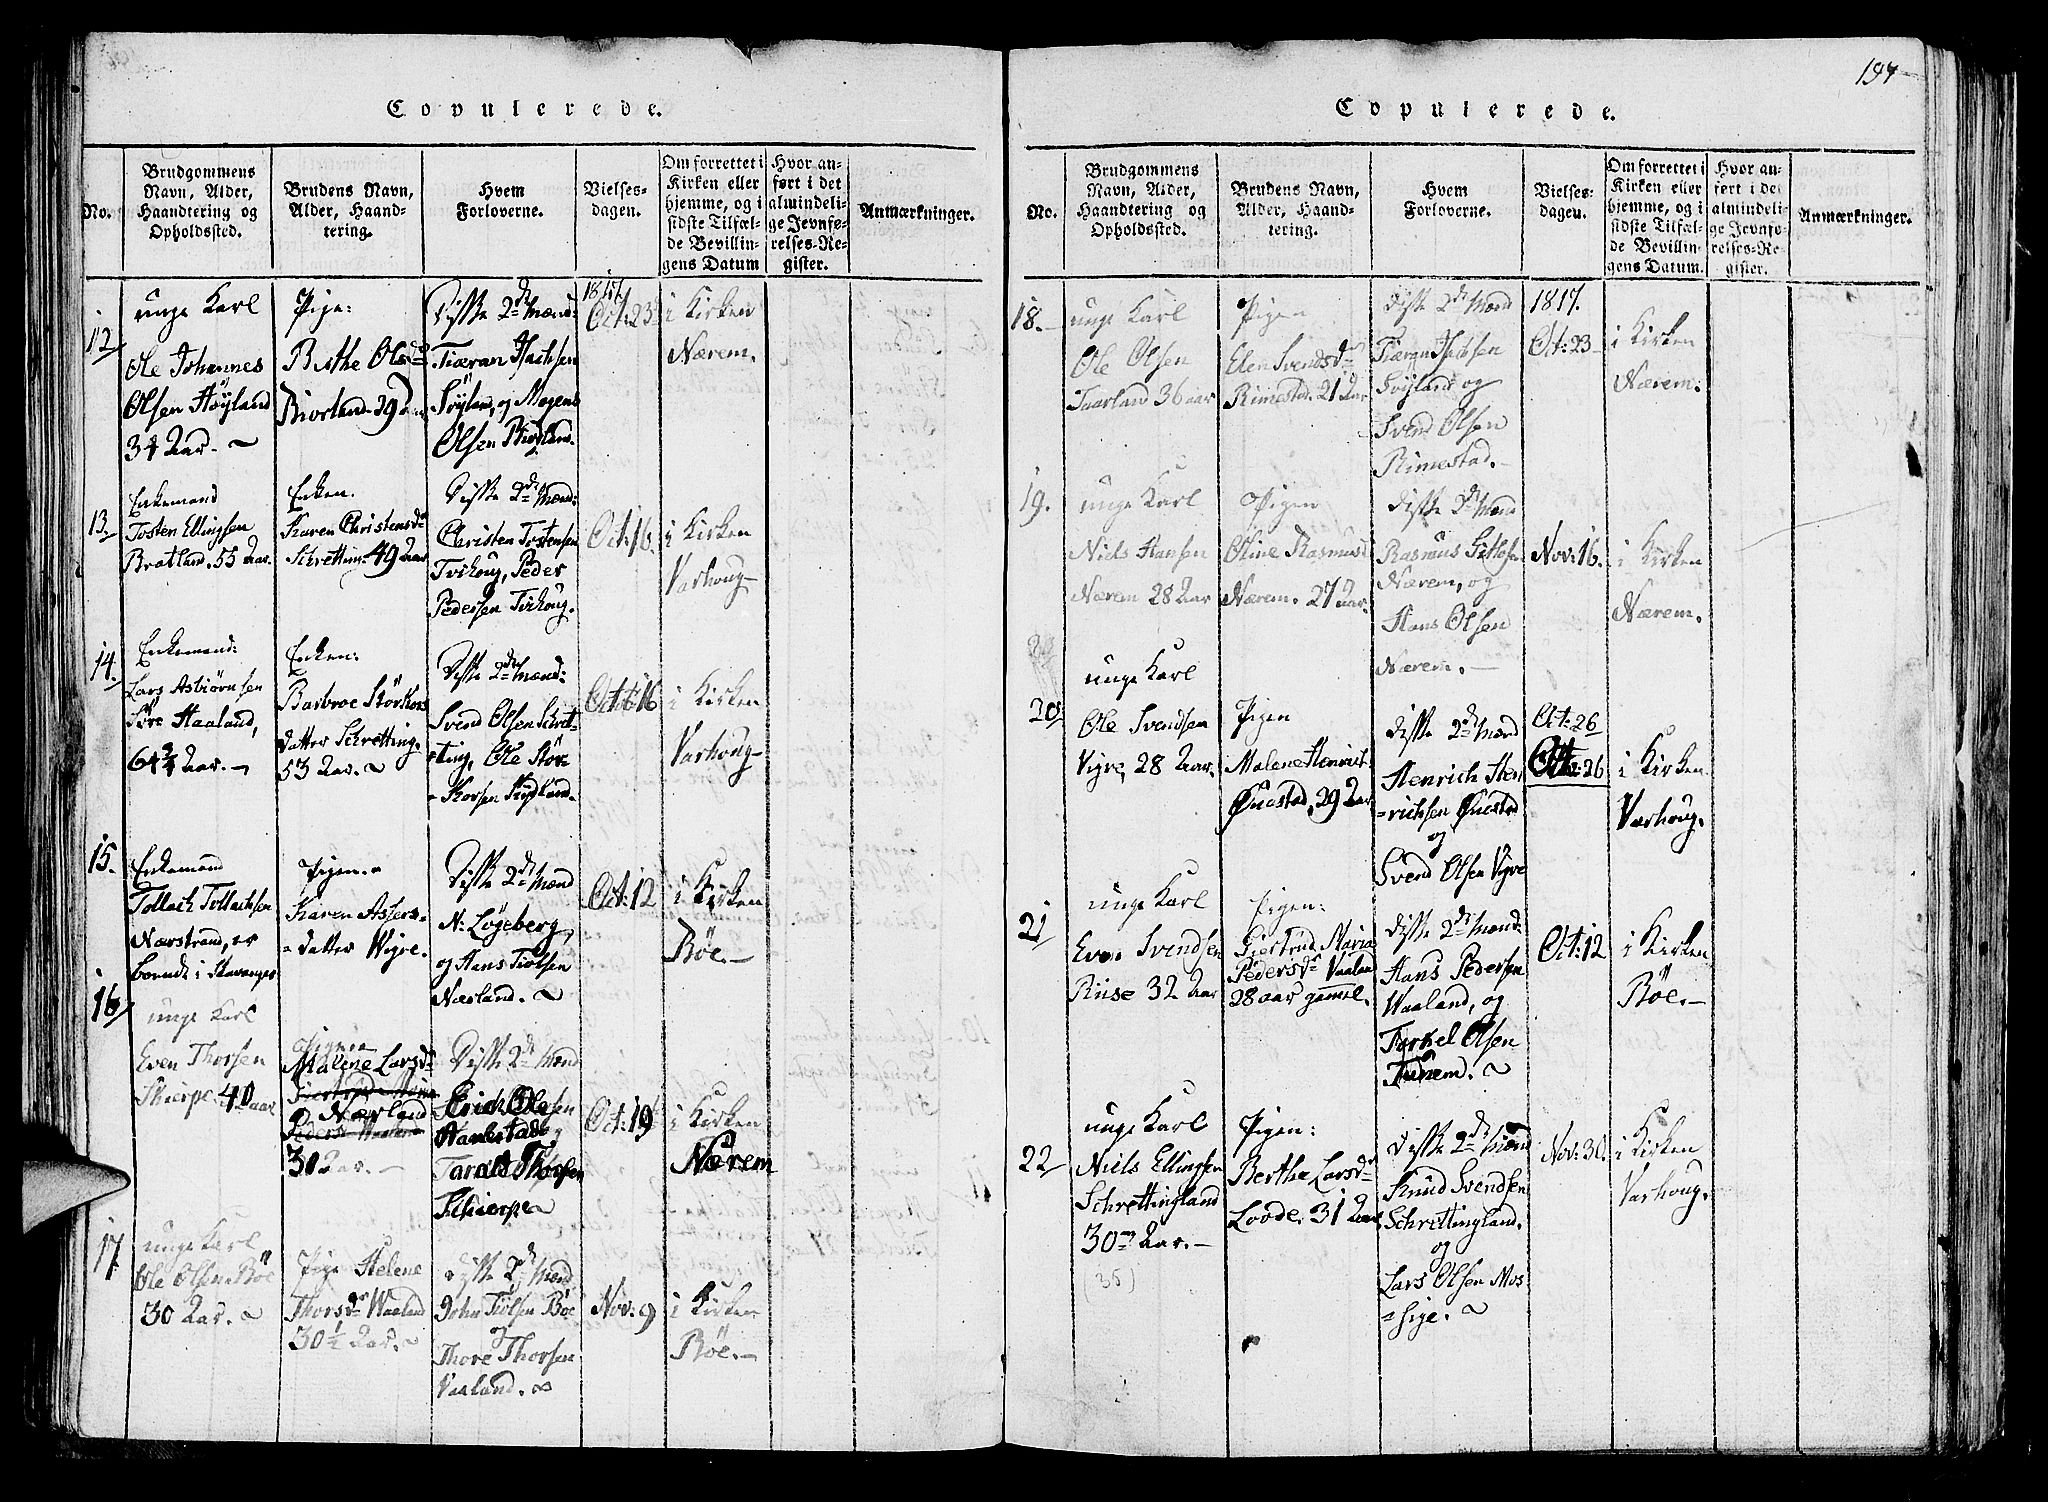 197
Copulerede.
No.
Brudgommens Navn, Alder, Haandtering og Opholdssted.
Brudens Navn, Alder, Haandtering.
Hvem Forloverne.
Vielsesdagen.
Om forrettet i Kirken eller hjemme, og i sidste Tilfælde Bevillingens Datum
Hvor anført i det almindelige Jevnførelses-Register.
Anmærkninger.
12
unge Karl
Ole Johannes
Olsen Höyland
34 Aar.
Pige:
Berthe Olsdr
29 Aar
Disse 2de Mænd:
Tiæran Isachsen
Söyland, og Mogens
Olsen
1817.
Oct: 23
i Kirken
Nærem.
13.
Enkemand
Tosten Ellingsen
Bratland. 55 Aar.
Enken.
Karen Christensdr
Schretting. 49 Aar
Disse 2de Mænd:
Christen Tostensen
Tvihoug, Peder
Pedersen Tvihoug.
Oct: 16.
i Kirken
Varhoug
14.
Enkemand:
Lars Asbiörnsen
Haaland,
64 3/4 Aar.
Enken:
Barbroe Störkors
datter Schretting.
53 Aar.
Disse 2de Mænd:
Svend Olsen Schret-
ting, Ole Stör-
korsen
Oct: 16
i Kirken
Varhoug
15.
Enkemand
Tollach Tollachsen
Nærstrand, er
boende i Stavanger
Pigen.
Karen Assers-
datter Vigre.
Disse 2de Mænd
N: Lögeberg,
og Hans Tiölsen
Nærland.
Oct: 12
i Kirken
Böe.
16
unge Karl
Even Thorsen
Skierpe. 40 aar
Pigen
Malene Larsdr
Nærland
30 Aar.
Disse 2de Mænd
Erich Olesen
Hanestad og
Tarald Thorsen
Skierpe
Oct: 19
i Kirken
Nærem
17
unge Karl
Ole Olsen Böe
30 Aar.
Pige Helene
Thorsdr Vaaland
30 1/2 Aar.
Disse 2de Mænd
John Tiölsen Böe
og
Thore Thorsen
Vaaland.
Nov: 9
i Kirken
Böe.
Copulerede.
No.
Brudgommens Navn, Alder, Haandtering og Opholdssted.
Brudens Navn, Alder, Haandtering.
Hvem Forloverne.
Vielsesdagen.
Om forrettet i Kirken eller hjemme, og i sidste Tilfælde Bevillingens Datum.
Hvor anført i det almindelige Jevnførelses-Register.
Anmærkninger.
18.
unge Karl
Ole Olsen
Taarland 36 aar
Pigen
Elen Svendsdr
Rimestad. 21 Aar
Disse 2de Mænd
Tiæran Isachsen
Söyland og
Svend Olsen
Rimestad.
1817.
Oct: 23
i Kirken
Nærem.
19.
unge Karl
Niels Hansen
Nærem 28 Aar
Pigen
Oline Rasmusd
Nærem. 27 Aar.
Disse 2de Mænd
Rasmus Gitlesen
Nærem, og
Hans Olsen
Nærem.
Nov: 16.
i Kirken
Nærem.
20
unge Karl
Ole Svendsen
Vigre, 28 Aar.
Pigen
Malene Henricht
Quastad, 29 Aar
Disse 2de Mænd
Henrich Hen
richsen Quastad
og
Svend Olsen Vigre
Oct: 26
Oct: 26
i Kirken
Varhoug.
21
unge Karl
Even Svendsen
Riise 32 Aar
Pigen:
Giertrud Maria
Pedersdr Vaalan
28 aar gammel.
Disse 2de Mænd:
Hans Pedersen
Waaland, og
Torkel Olsen
Tunem.
Oct: 12
i Kirken
Böe.
22
unge Karl
Niels Ellingsen
Schrettingland
30 Aar.
(35)
Pigen:
Berthe Larsdr
Loode. 31 Aar
Disse 2de Mænd
Knud Svendsen
Schrettingland.
og
Lars Olsen Mos
sige.
Nov: 30.
i Kirken
Varhoug.